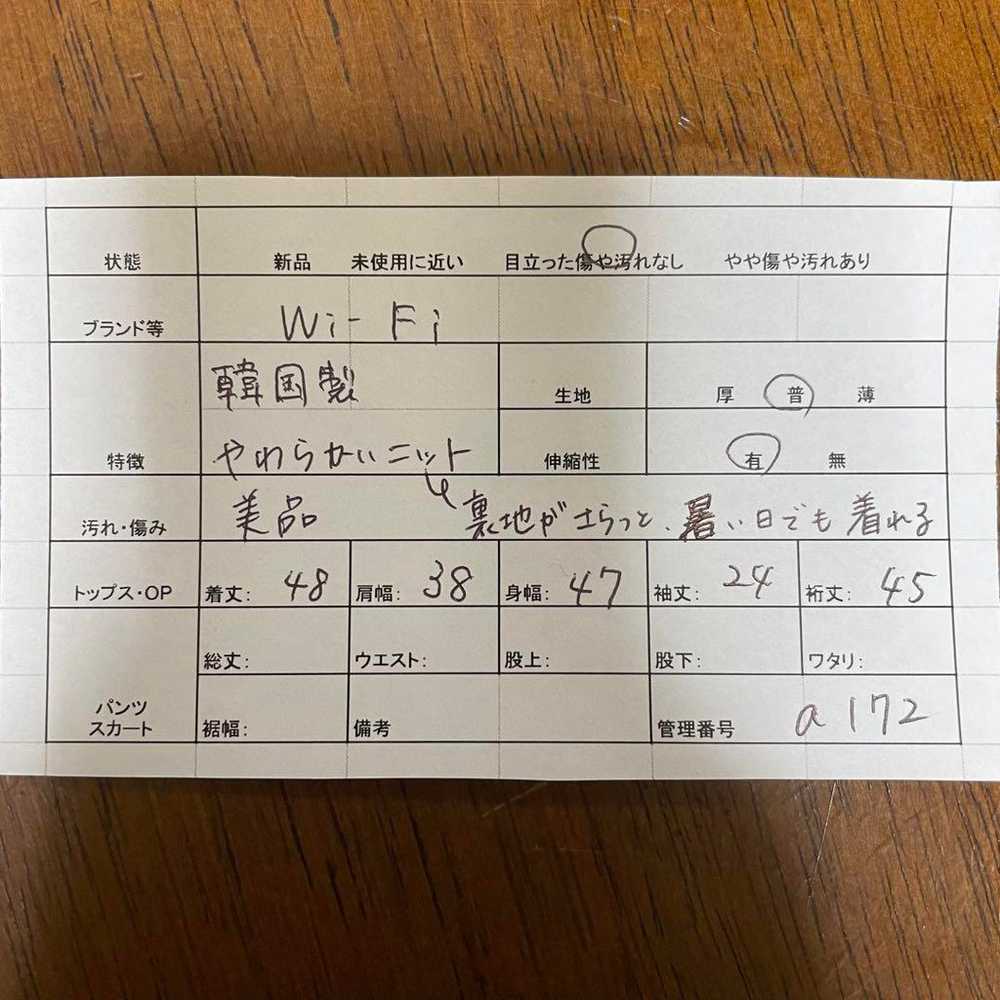 状態 新品 未使用に近い 目立った傷や汚れなし やや傷や汚れあり
ブランド等 Wi-Fi
韓国製 生地 厚 普 薄
特徴 やわらかいニット 伸縮性 有 無
汚れ・傷み 美品 裏地がさらっと、暑い日でも着れる
トップス・OP 着丈: 48 肩幅: 38 身幅: 47 袖丈: 24 裄丈: 45
総丈: ウエスト: 股上: 股下: ワタリ:
パンツ
スカート 裾幅: 備考 管理番号 a172